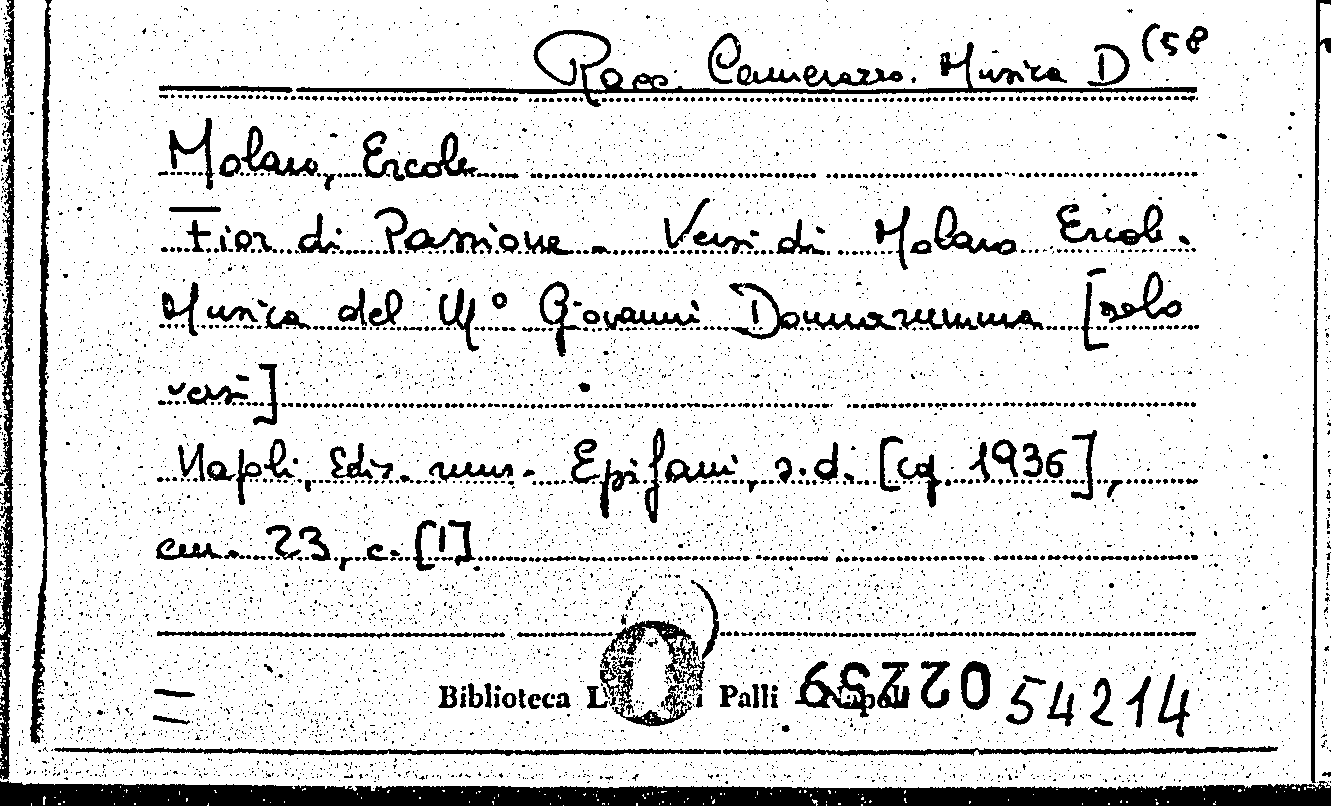 Racc. Camerazzo. Musica D (58
Molaro, Ercole
Fior di Passione - Versi di Molaro Ercole.
Musica del M° Giovanni Donnarumma [solo
versi]
Napoli, Ediz. mus. Epifani, s.d. [cq. 1936],
cm. 23, c. [1]
Biblioteca L Palli - Napoli 54214